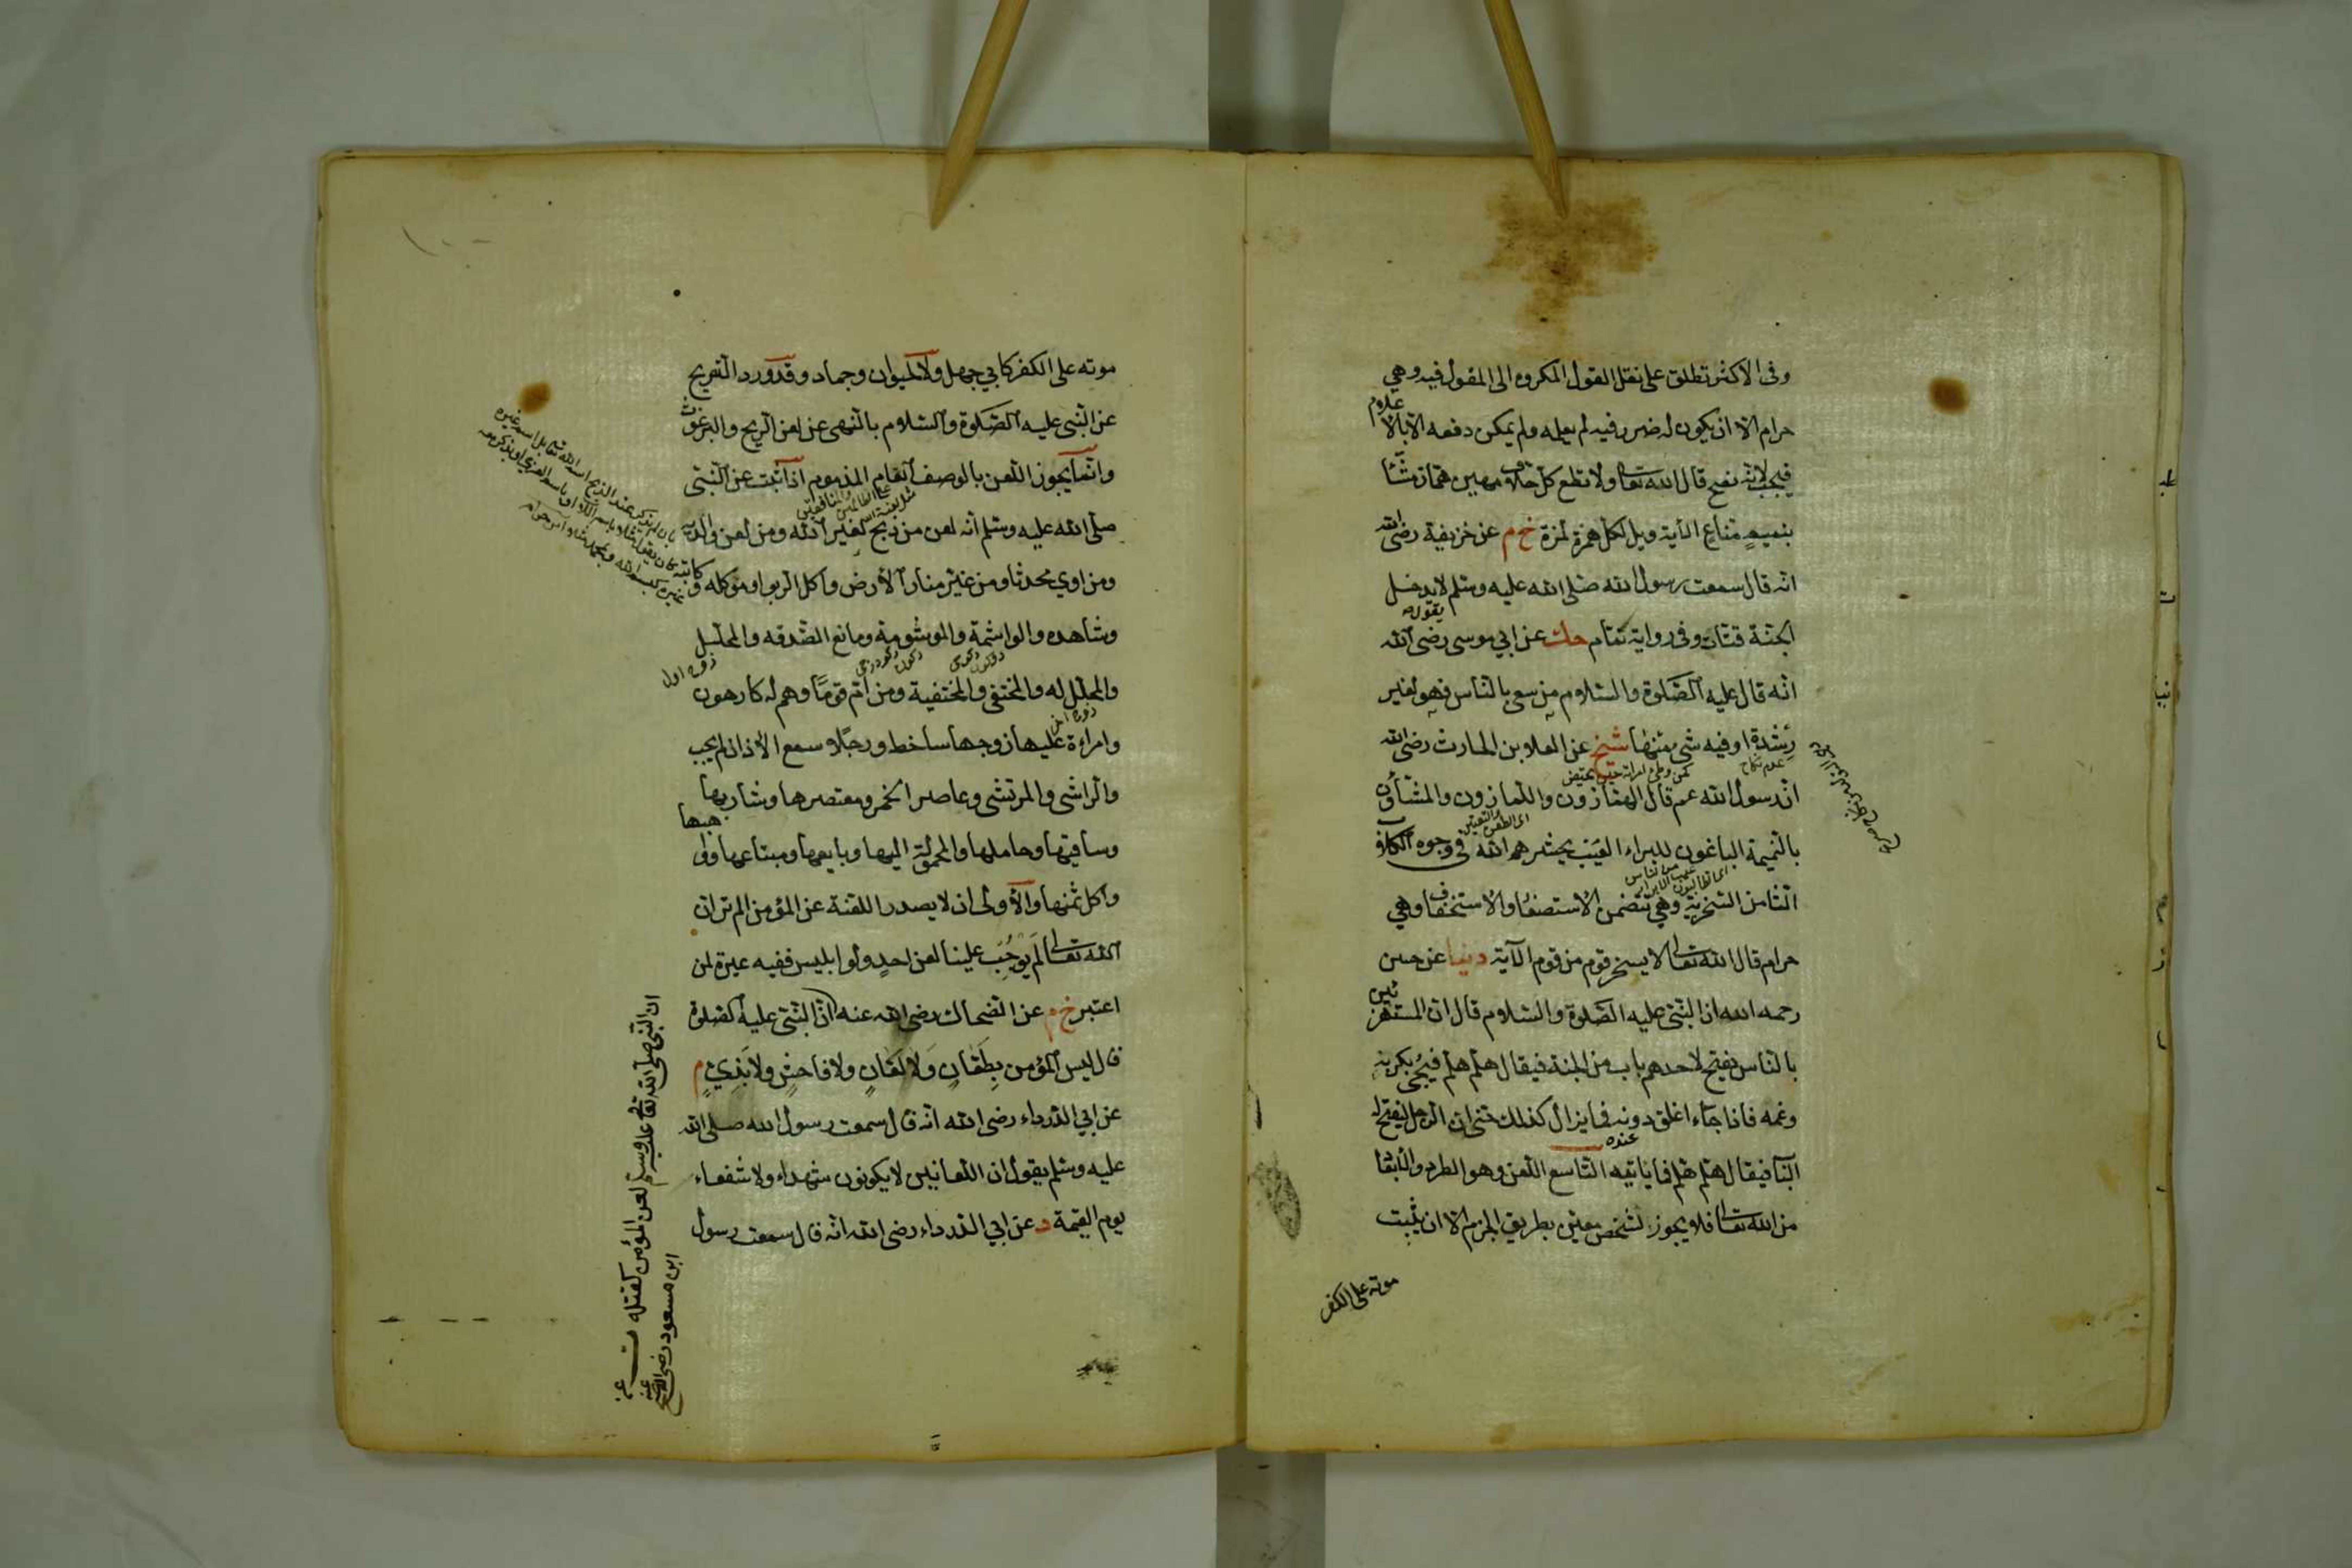 وفى الاكثر تطلق على نقل القول المكروه الى المقول فيه وهى
حرام الا ان يكون له ضرر فيه لم يعلمه ولم يمكن دفعه الا بالاعلام
فيجب لانه نصح قال الله تعالى ولا تطع كل حلاف مهين هماز مشّآء
بنميم منّاع الآية ويل لكل همزة لمزة خ م عن حزيفة رضى الله
انه قال سمعت رسول الله صلى الله عليه وسلم لا يدخل
الجنّة قتّات وفى رواية نمّام حك عن ابى موسى رضى الله
انه قال عليه الصّلوة والسّلام من سعى بالنّاس فهو لغير
رشدة او فيه شىء منها شيخ عن العلا بن الحارث رضى الله
ان رسول الله عم قال الهمّازون واللّمازون والمشّاؤن
بالنّميمة الباغون للبراء العيب يحشرهم الله فى وجوه الكلاب
الثامن السّخرية وهى تتضمن الاستصغار والاستخفاف وهى
حرام قال الله تعالى لا يسخر قوم من قوم الآية دنيا عن حسن
رحمه الله ان النّبى عليه الصّلوة والسّلام قال ان المستهزئين
بالنّاس يفتح لاحدهم باب من الجنة فيقال هلم هلم فيجىء بكربه
وغمه فاذا جآء اغلق دونه فما يزال كذلك حتى ان الرجل ليفتح له
الباب فيقال هلم هلم فما ياتيه التاسع اللعن وهو الطرد والابعاد
من الله تعالى فلا يجوز لشخص معيّن بطريق الجزم الا ان يثبت
موته على الكفر
موته على الكفر كابى جهل ولا لحيوان وجماد وقد ورد التصريح
عن النّبى عليه الصّلوة والسّلام بالنّهى عن لعن الريح والبرغوث
وانّما يجوز اللعن بالوصف العام المذموم اذا ثبت عن النّبى
صلّى الله عليه وسلم انه لعن من ذبح لغير الله ومن لعن والديه
ومن اوى محدثا ومن غيّر منار الأرض واكل الربوا وموكله و كاتبه
وشاهده والواشمة والموشومة ومانع الصّدقه والمحلّل
والمحلّل له والمختفى والمختفية ومن امّ قوما وهم له كارهون
وامراءة عليها زوجها ساخط ورجلا سمع الاذان لم يجب
والراشى والمرتشى وعاصر الخمر ومعتصرها وشاربها
وساقيها وحاملها والمحمولة اليها وبايعها ومبتاعها وواهبها
واكل ثمنها والاولى ان لا يصدر اللعنة عن المؤمن الم تر ان
الله تعالى لم يوجب علينا لعن احد ولو ابليس ففيه عبرة لمن
اعتبر خ م عن الضحاك رضى الله عنه انّ النّبى عليه الصلوة
قال ليس المؤمن بطعّان ولا لعّان ولا فاحش ولا بذىّ م
عن ابى الدرداء رضى الله انه قال سمعت رسول الله صلى الله
عليه وسلم يقول ان اللعانين لا يكونون شهداء ولا شفعاء
يوم القيمة د عن ابى الدرداء رضى الله انه قال سمعت رسول
ان النبى صلى الله تعالى عليه وسلم لعن المؤمن كقتله
ابن مسعود رضى الله عنه